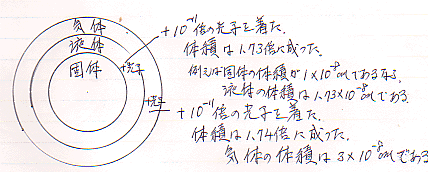 気体
液体
固体
+光子
+光子
+10⁻¹¹倍の光子を着た。
体積は1.73倍に成った。
例えば固体の体積が1×10⁻⁸cmであるなら、
液体の体積は1.73×10⁻⁸cmである
+10⁻¹¹倍の光子を着た。
体積は1.74倍に成った。
気体の体積は3×10⁻⁸cmである